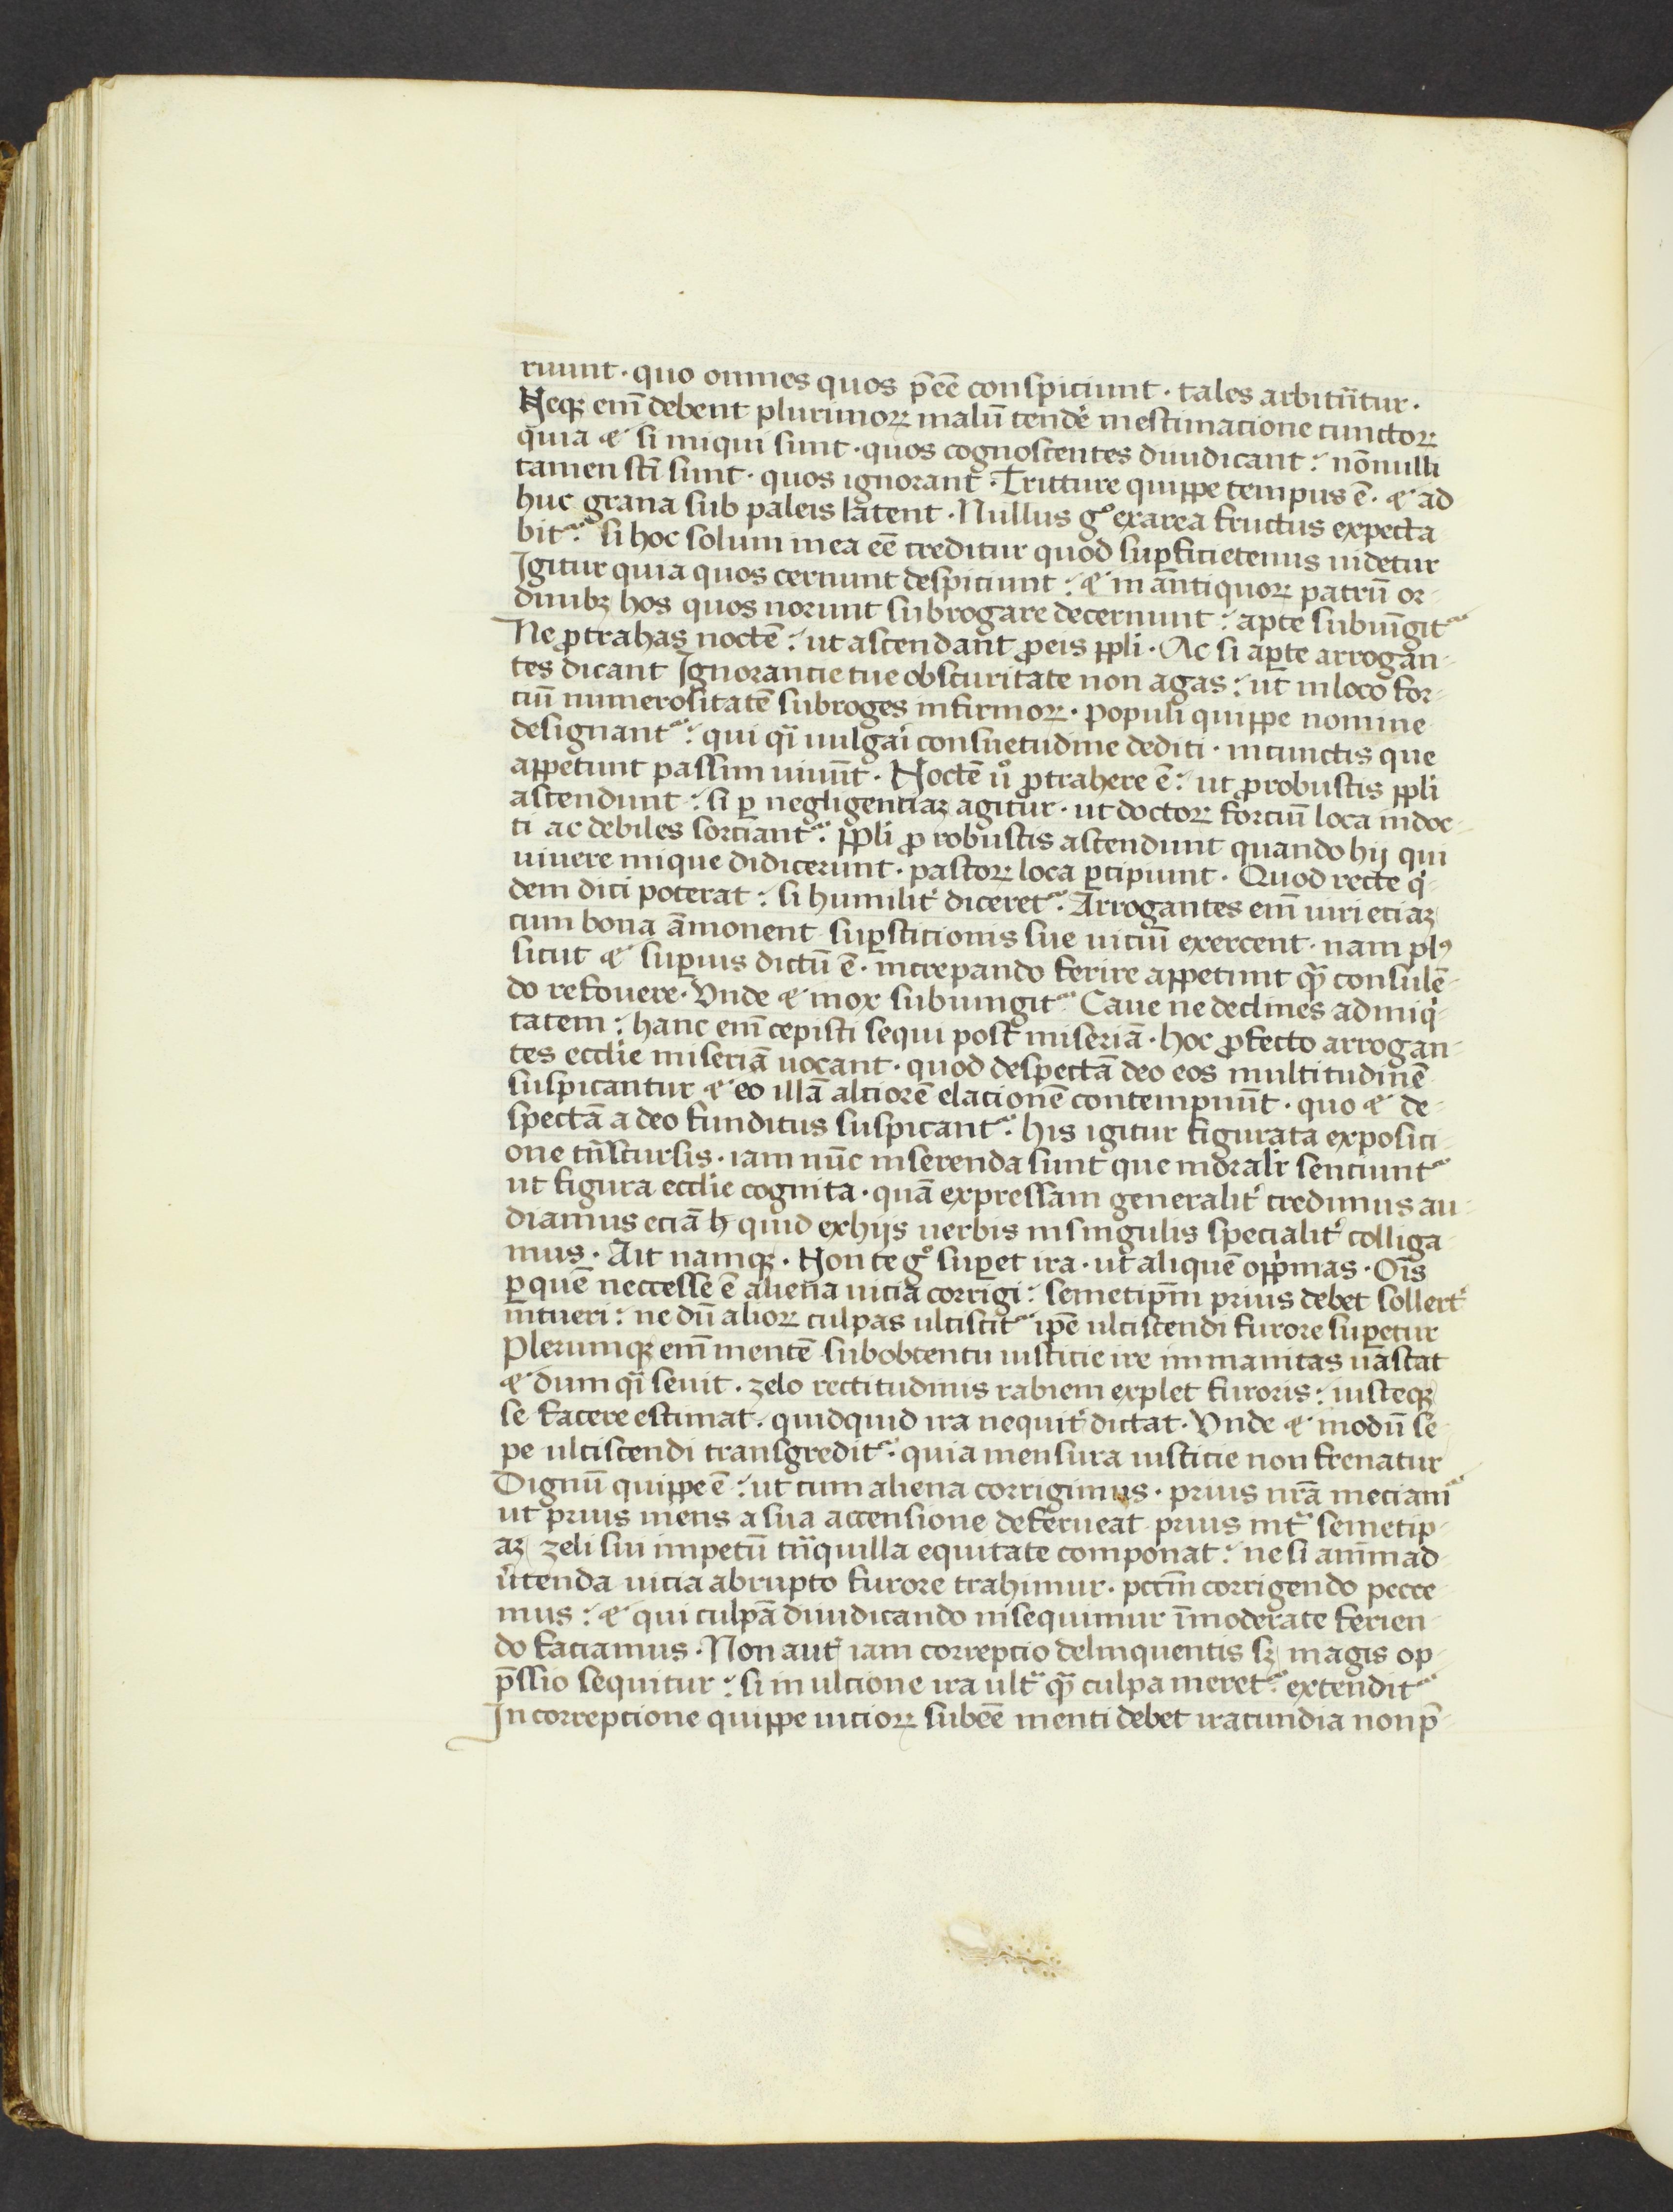 ruunt · quo omnes quos p̄cē conspiciunt · tales arbitũtur ·
Neqꝫ eni᷒ debent plurimoꝝ malū tende᷑ in estimacione cunctoꝝ
quia ⁊ si iniqui sunt · quos cognoscentes diiudicant : nōnulli
tamen sc̄i sunt · quos ignorant · Triture quippe tempus ē · ⁊ ad
huc grana sub paleis latent · Nullus gͦ ex area fructus expecta
bit᷑ : si hoc solum in ea eē creditur quod suꝑficietenus uidetur
Igitur quia quos cernunt despiciunt : ⁊ in antiquoꝝ patrū or-
dinibꝫ hos quos norunt subrogare decernunt : apte subiūgit᷑
Ne ꝓtrahas noctē : ut ascendant ꝓ eis pp̄li · Ac si aꝑte arrogan-
tes dicant Ignorancie tue obscuritate non agas : ut in loco for-
ciū numerositatē subroges infirmoꝝ · populi quippe nomine
designant᷑ : qui qͣi uulgaͥ consuetudine dediti · in cunctis que
appetunt passim uiuūt · Noctē uͦ ꝓtrahere ē : ut ꝓ robustis pp̄li
ascendunt : si ꝑ negligenciaꝫ agitur · ut doctoꝝ forciū loca indoc-
ti ac debiles sorciant᷑ : pp̄li ꝓ robustis ascendunt quando hij qui
uiuere inique didicerunt · pastoꝝ loca ꝑcipiunt · Quod recte qͥ-
dem dici poterat : si humilit᷑ diceret᷑ : Arrogantes eni᷒ uiri eciaꝫ
cum bona āmonent suꝑsticionis sue uiciū exercent · nam plꝰ
sicut ⁊ suꝑius dictū ē · increpando ferire appetunt qͣ̄ consulē-
do refouere · Vnde ⁊ mox subiungit᷑ Caue ne declines ad iniqͥ-
tatem : hanc eni᷒ cepisti sequi post miseriā · hoc ꝓfecto arrogan-
tes ecclīe miseriā uocant · quod despectā deo eos multitudinē
suspicantur ⁊ eo illā alciorē elacionē contempnūt · quo ⁊ de-
spectā a deo funditus suspicant᷑ : his igitur figurata exposici-
one tͣnscursis · iam nūc inserenda sunt que moralr̄ senciunt᷑
ut figura ecclīe cognita · quā expressam generalit᷑ credimus au-
diamus eciā h̄ quid ex hijs uerbis in singulis specialit᷑ colliga-
mus · Ait namqꝫ · Non te gͦ suꝑet ira · ut aliquē opp̄mas · Oīs
ꝑ quē neccesse ē aliena uicia corrigi : semetip̄m prius debet sollert᷑
intueri : ne dū alioꝝ culpas ulciscit᷑ ip̄e ulciscendi furore suꝑetur
Plerumqꝫ eni᷒ mentē sub obtentu iusticie ire immanitas uastat
⁊ dum qͣi seuit · zelo rectitudinis rabiem explet furoris : iusteqꝫ
se facere estimat · quidquid ira nequit᷑ dictat · Vnde ⁊ modū se-
pe ulciscendi transgredit᷑ : quia mensura iusticie non frenatur
Dignū quippe ē : ut cum aliena corrigimus · prius nr̄ā meciam᷑
ut prius mens a sua accensione deferueat prius int͛ semetip-
aꝫ zeli sui impetū tͣnquilla equitate componat : ne si animad-
u͛tenda uicia abrupto furore trahimur · pccm̄ corrigendo pecce-
mus : ⁊ qui culpā diiudicando insequimur īmoderate ferien-
do faciamus · Non aut᷑ iam correpcio delinquentis sꝫ magis op-
p̄ssio sequitur : si in ulcione ira ultͣ qͣ̄ culpa meret᷑ : extendit᷑
In correpcione quippe uicioꝝ subeē menti debet iracundia non p̄-